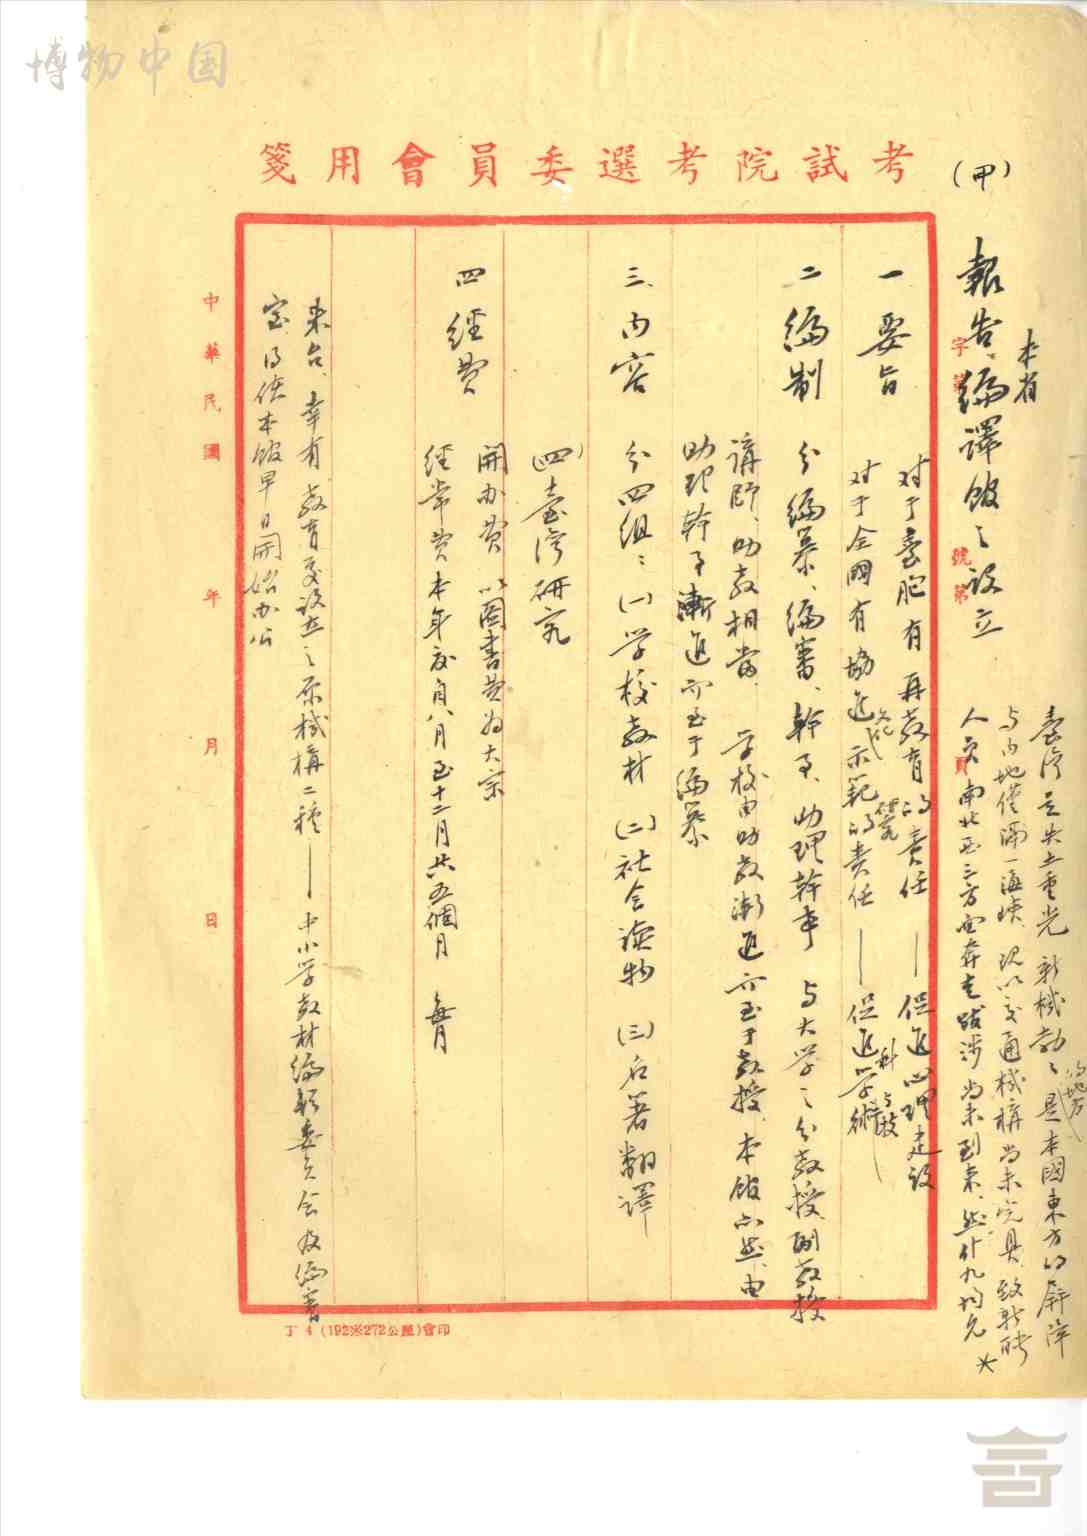 博物中国
考試院考選委員會用箋
(甲)
報告本省編譯館之設立
字第
號第
頁
臺灣是失土重光 是本國東方的屏障
与内地僅隔一海峽 現以交通機構尚未完具 致新聘
人員南北西三方面奔走跋涉 尚未到來、然什九均允*
一 要旨
对于臺胞有再教育的責任 —促進心理建設
对于全國有協進文化示範研究的責任 —促進学術
二 編制
分編纂、編審、幹事、助理幹事 与大学之分教授副教授
講師、助教相当. 学校由助教漸進而至于教授. 本館亦然. 由
助理幹事漸進而至于編纂
三、内容
分四組: (一)学校教材 (二)社会讀物 (三)名著翻譯
(四)臺灣研究
四 經費
開办費 以圖書費为大宗
經常費本年度自八月至十二月共五個月 每月
来台、幸有教育處設立之原機構二種——中小学教材編輯委員会及編審
室、得使本館早日開始办公
中華民國 年 月 日
丁4(192×272公厘)會印